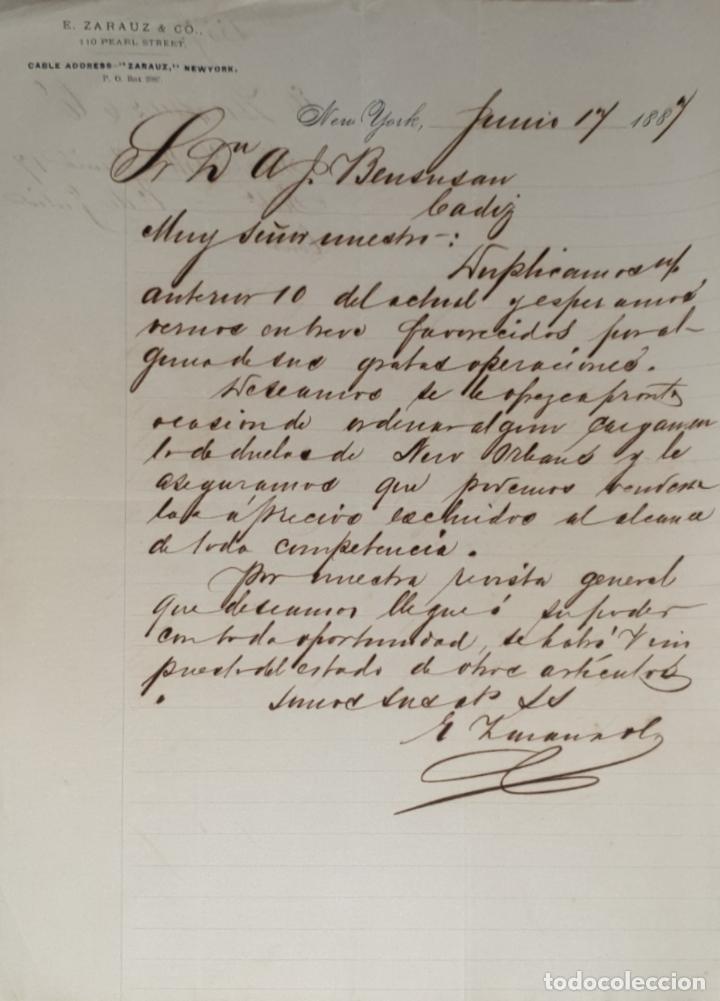 E. ZARAUZ & CO.,
110 PEARL STREET.
CABLE ADDRESS "ZARAUZ," NEW YORK.
P. O. Box
New York, Junio 17 1887
Sr Dn A J. Bensusan
Cadiz
Muy señor nuestro:
Duplicamos n/
anterior 10 del actual y esperamos
vernos en breve favorecidos por al-
guna de sus gratas operaciones.
Deseamos se le ofrezca pronto
ocasion de ordenar algun cargamen
to de duelas de New Orleans y le
aseguramos que podemos
las á precios al alcance
de toda competencia.
Por nuestra revista general
que deseamos llegue á su poder
con toda oportunidad, se habrá V im
puesto del estado de otros artículos
Somos sus at. SS
E Zarauz & Co
todocoleccion